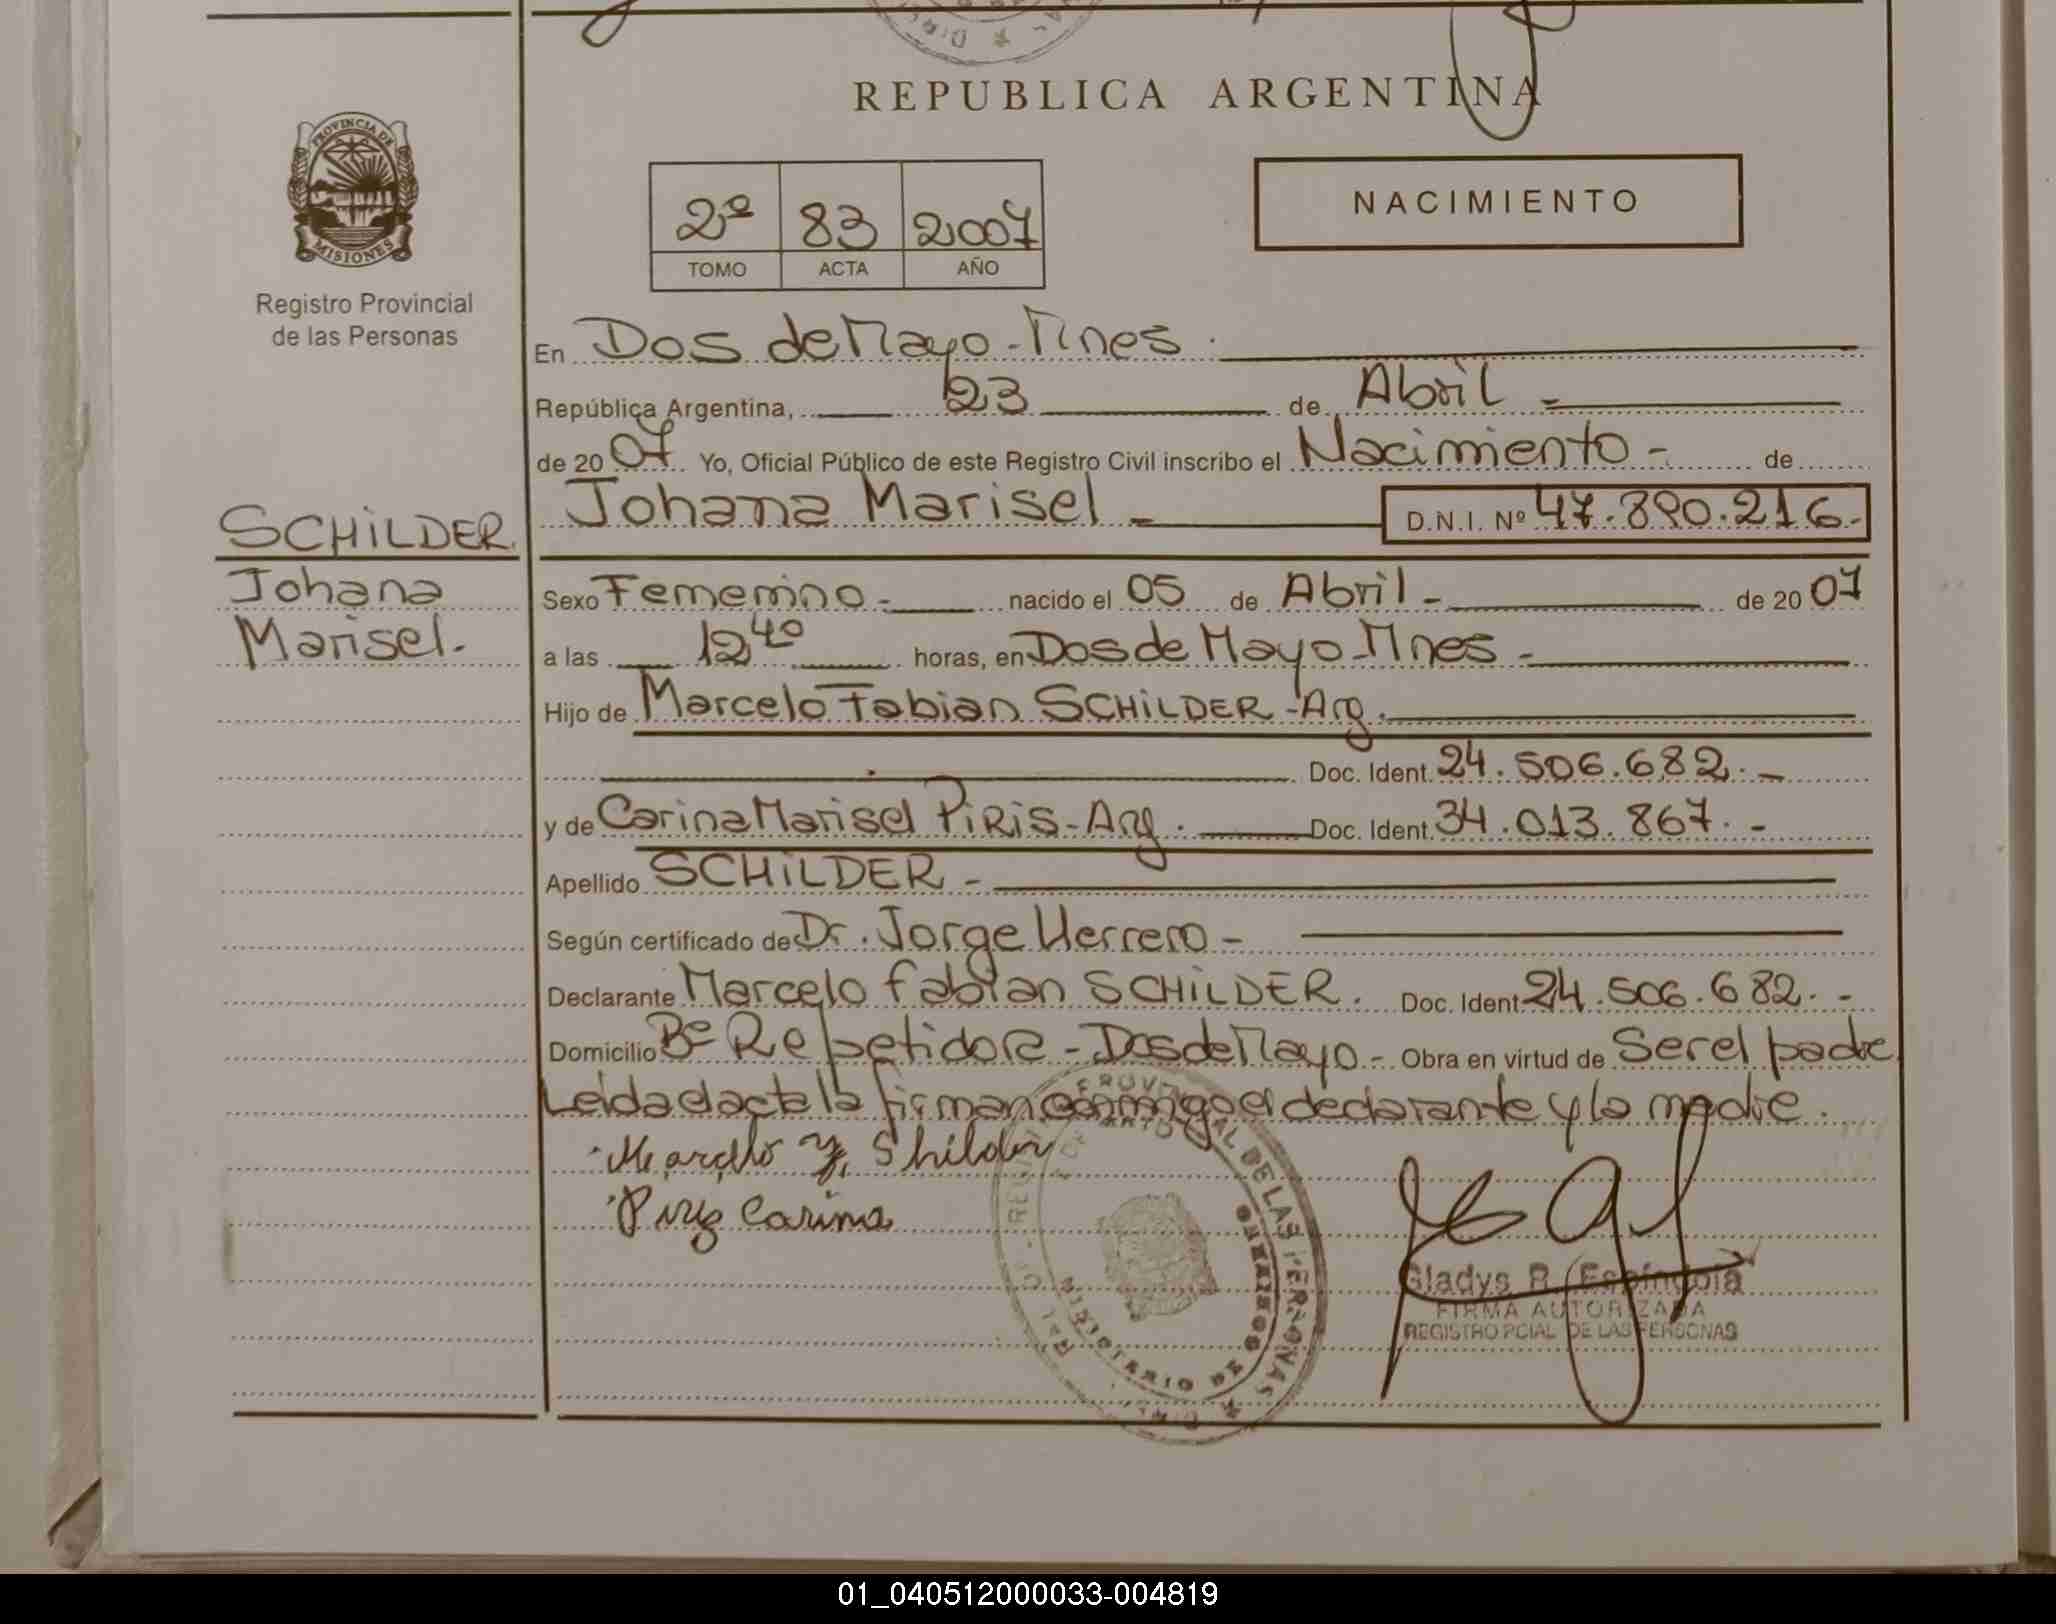 REPUBLICA ARGENTINA
PROVINCIA DE
MISIONES
Registro Provincial
de las Personas
NACIMIENTO
2º 83 2007
TOMO ACTA AÑO
En Dos de Mayo - Mnes.
República Argentina, 23 de Abril -
de 2007 Yo, Oficial Público de este Registro Civil inscribo el Nacimiento - de
Johana Marisel - D.N.I. Nº 47.890.216.-
SCHiLDER
Johana
Marisel.
Sexo Femenino - nacido el 05 de Abril - de 2007
a las 12 40 horas, en Dos de Mayo - Mnes -
Hijo de Marcelo Fabian SCHiLDER - Arg.
Doc. Ident. 24.506.682.-
y de Carina Marisel PiRiS - Arg. Doc. Ident. 34.013.867.-
Apellido SCHiLDER -
Según certificado de Dr. Jorge Herrero -
Declarante Marcelo Fabian SCHiLDER. Doc. Ident 24.506.682.-
Domicilio Bº Repetidora - Dos de Mayo - Obra en virtud de Ser el padre
Leida el acta la firman conmigo el declarante y la madre.
Marcelo F. Shilder
Carina
Gladys R. Espíndola
FIRMA AUTORIZADA
REGISTRO PCIAL DE LAS PERSONAS
01_040512000033-004819